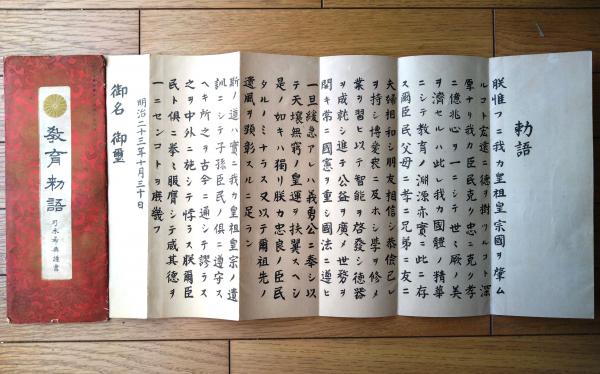 勅語
朕惟フニ我カ皇祖皇宗國ヲ肇ム
ルコト宏遠ニ德ヲ樹ツルコト深
厚ナリ我カ臣民克ク忠ニ克ク孝
ニ億兆心ヲ一ニシテ世々厥ノ美
ヲ濟セルハ此レ我カ國體ノ精華
ニシテ教育ノ淵源亦實ニ此ニ存
ス爾臣民父母ニ孝ニ兄弟ニ友ニ
夫婦相和シ朋友相信シ恭儉己レ
ヲ持シ博愛衆ニ及ホシ學ヲ修メ
業ヲ習ヒ以テ智能ヲ啓發シ德器
ヲ成就シ進テ公益ヲ廣メ世務ヲ
開キ常ニ國憲ヲ重シ國法ニ遵ヒ
一旦緩急アレハ義勇公ニ奉シ以
テ天壤無窮ノ皇運ヲ扶翼スヘシ
是ノ如キハ獨リ朕カ忠良ノ臣民
タルノミナラス又以テ爾祖先ノ
遺風ヲ顯彰スルニ足ラン
斯ノ道ハ實ニ我カ皇祖皇宗ノ遺
訓ニシテ子孫臣民ノ俱ニ遵守ス
ヘキ所之ヲ古今ニ通シテ謬ラス
之ヲ中外ニ施シテ悖ラス朕爾臣
民ト俱ニ拳々服膺シテ咸其德ヲ
一ニセンコトヲ庶幾フ
明治二十三年十月三十日
御名 御璽
教育勅語
乃木希典謹書